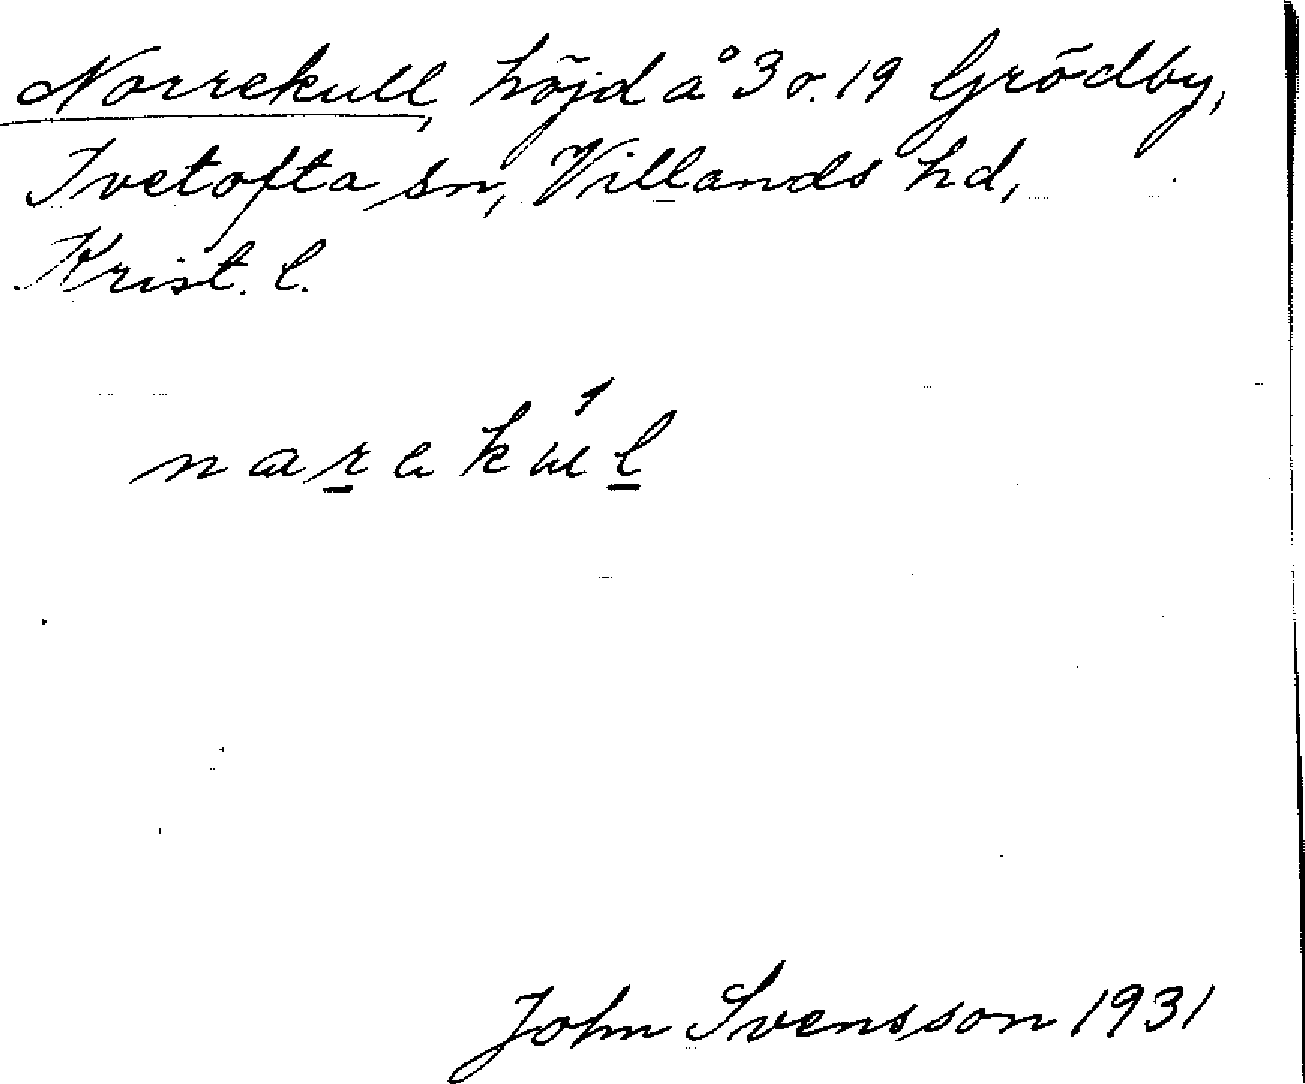 Norrekull, höjd å 3 o. 19 Grödby,
Ivetofta sn, Villands hd,
Krist. l.
John Svensson 1931